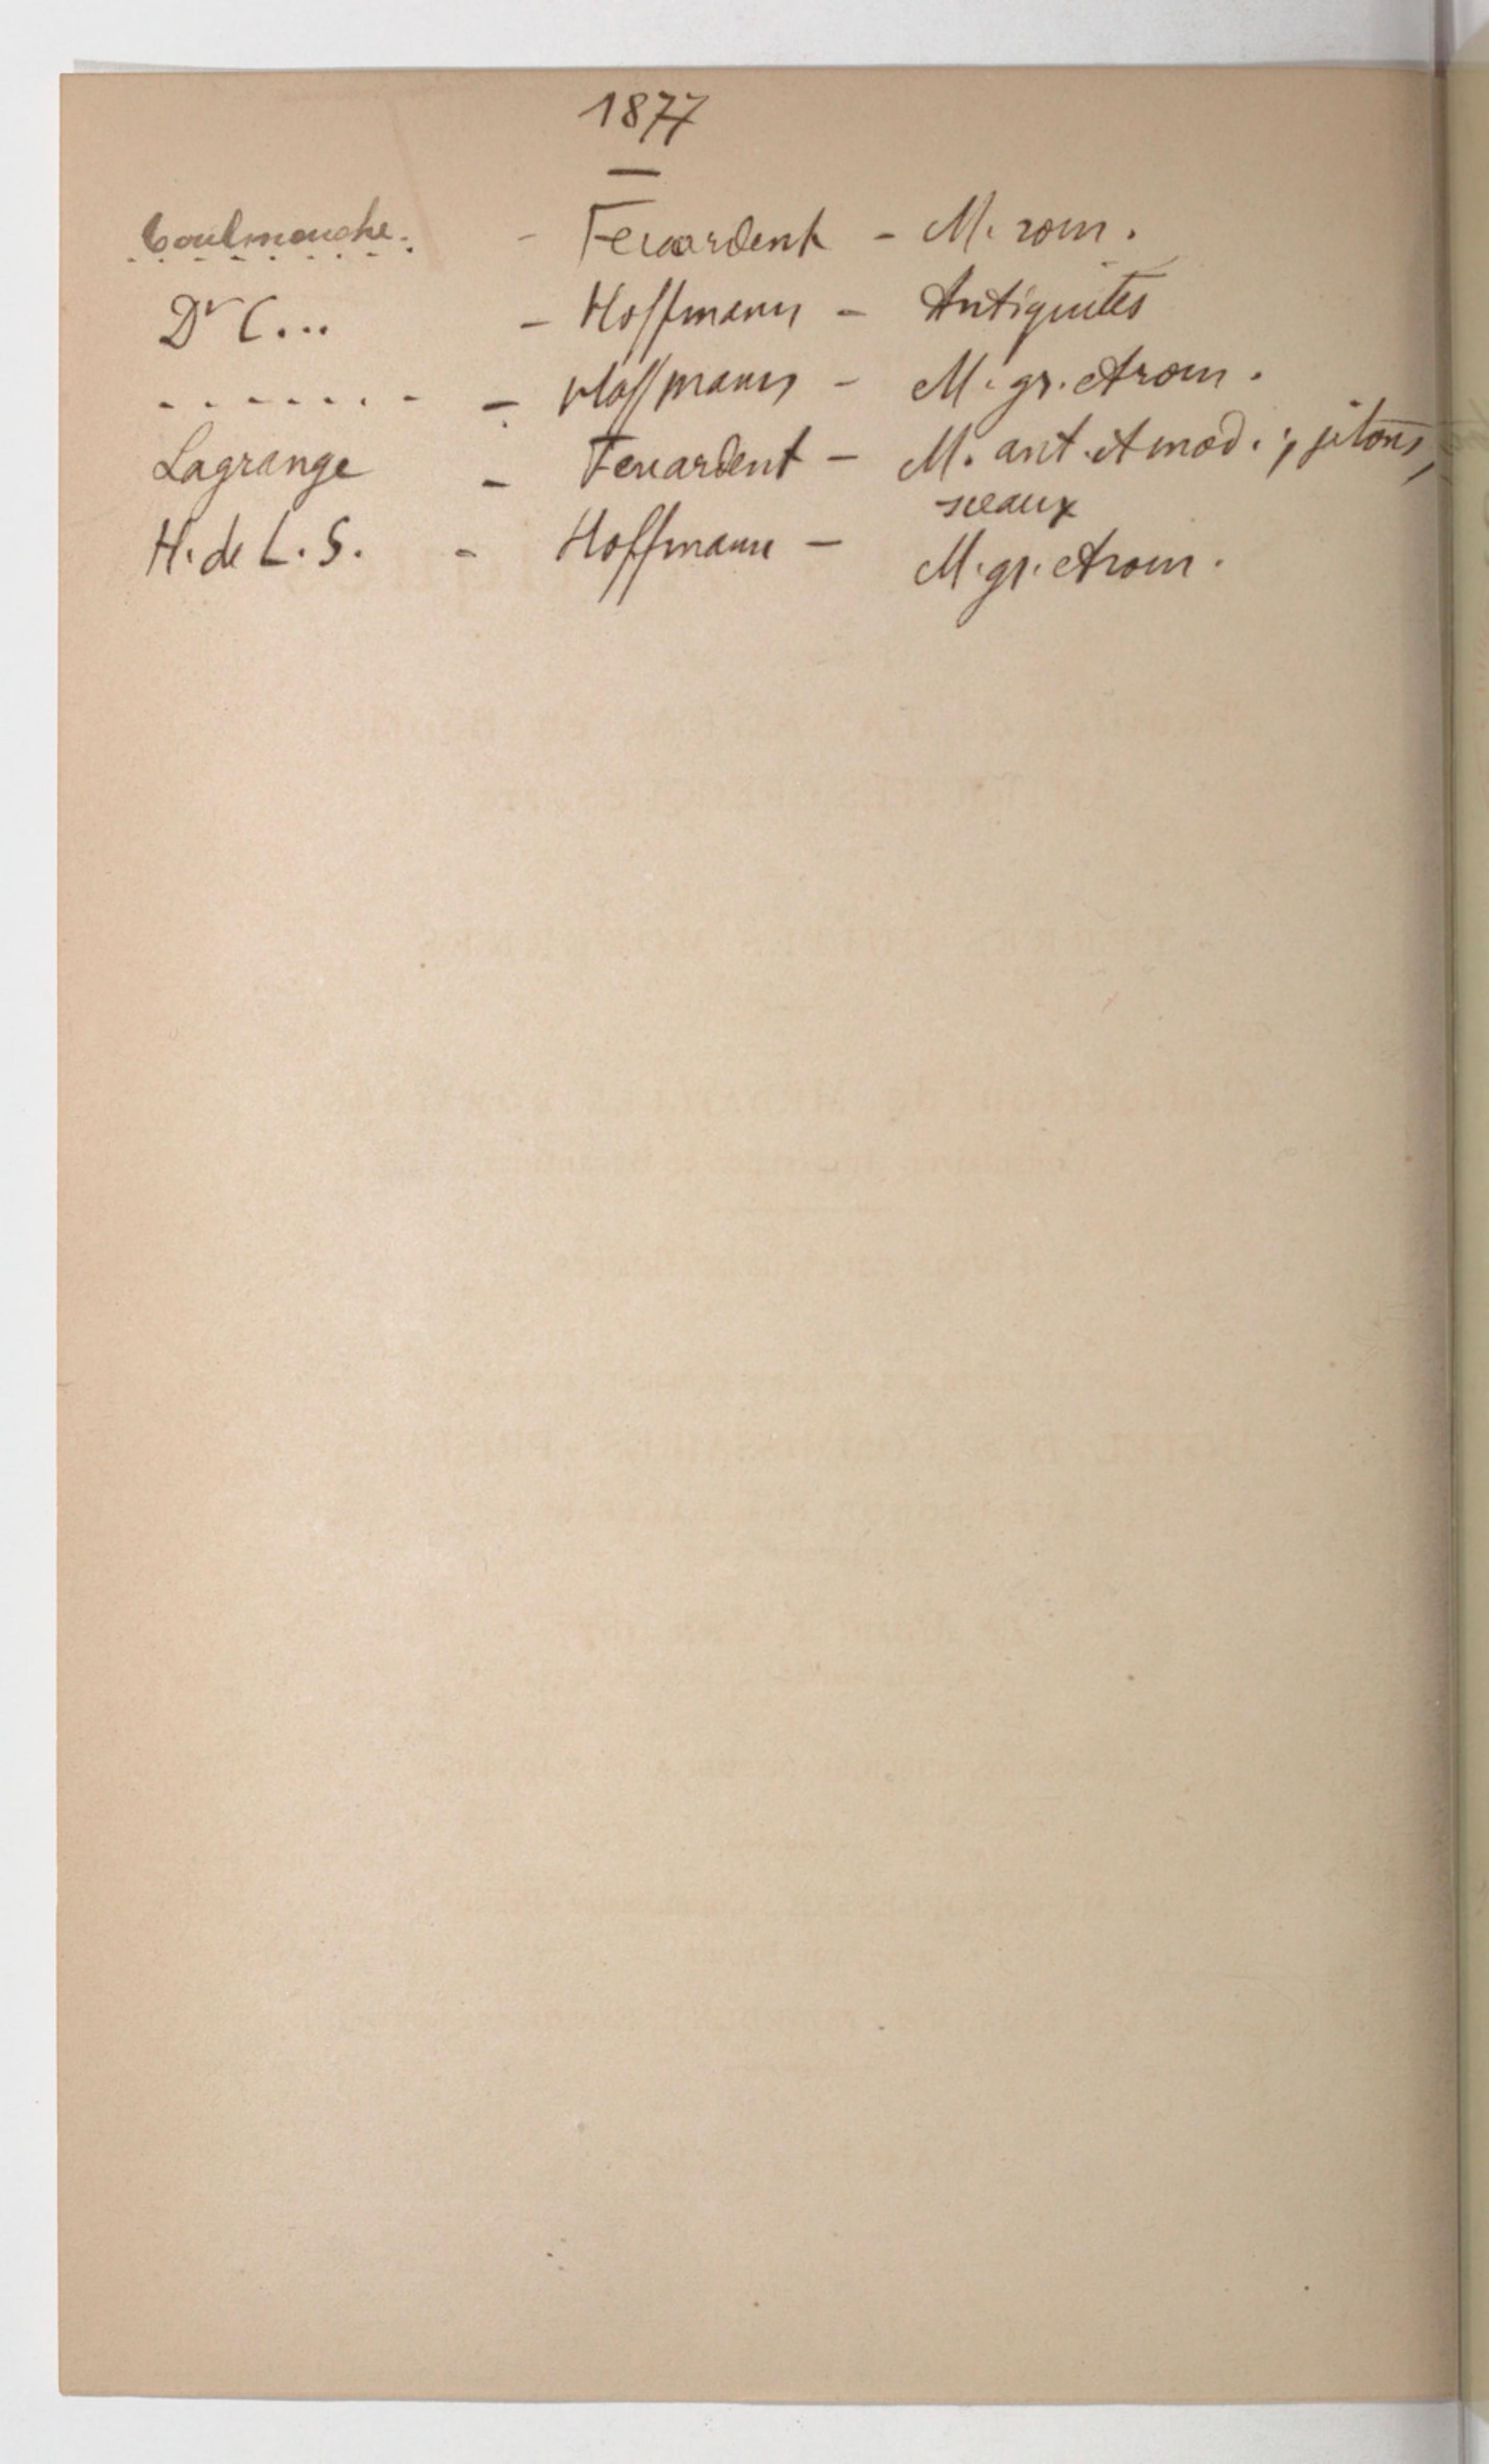 1877
Coulmouche. - Feuardent - M. rom.
Dr C... - Hoffmann - Antiquités
. . . . . . . . - Hoffmann - M. gr. et rom.
Lagrange - Feuardent - M. ant. et mod. ; jetons,
sceaux
H. de L. S. - Hoffmann - M. gr. et rom.